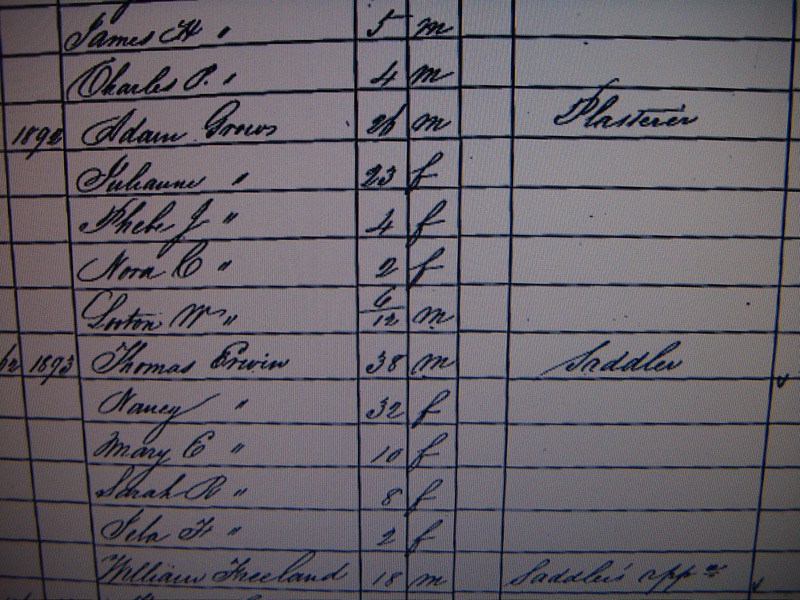 James H " 5 m
Charles P. " 4 m
1892 Adam Grows 26 m Plasterer
Julianne " 23 f
Phebe J " 4 f
Nora C " 2 f
Lorton W " 6/12 m
1893 Thomas Erwin 38 m Saddler
Nancy " 32 f
Mary E " 10 f
Sarah R " 8 f
Lela F " 2 f
William Freeland 18 m Saddler's app